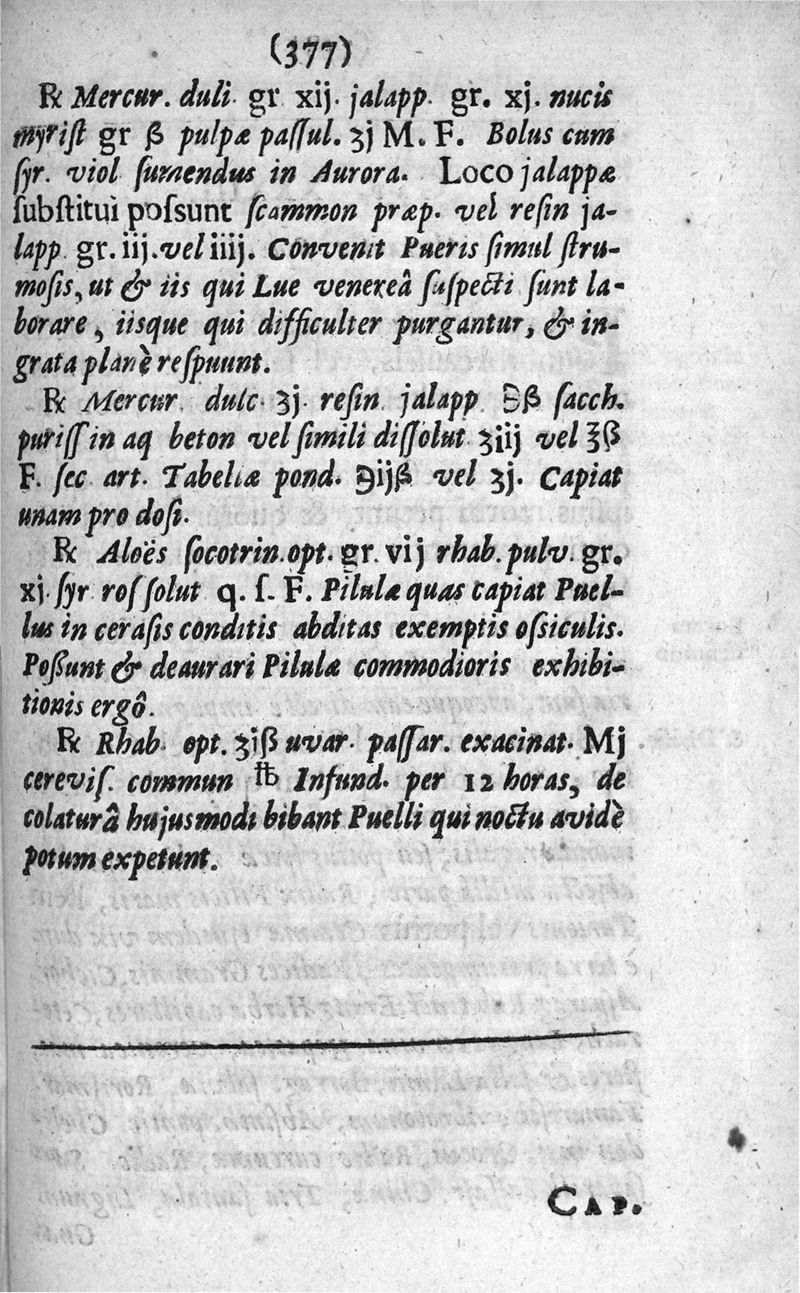 (377)
℞ Mercur. duli. gr xij. jalapp. gr. xj. nucis
myrist gr ß pulpæ passul. ʒj M. F. Bolus cum
ſyr. viol ſumendus in Aurora. Loco jalappæ
ſubſtitui poſsunt ſcammon præp. vel reſin ja-
lapp. gr. iij. vel iiij. Convenit Pueris ſimul ſtru-
moſis, ut & iis qui Lue venereâ ſuſpecti ſunt la-
borare, iisque qui difficulter purgantur, & in-
grata planè reſpuunt.
℞ Mercur. dulc. ʒj. reſin. jalapp ℈ß ſacch.
puriſſ in aq beton vel ſimili diſſolut ʒiij vel ℥ß
F. ſec art. Tabellæ pond. ℈ijß vel ʒj. Capiat
unam pro doſi.
℞ Aloës ſocotrin. opt. gr. vij rhab. pulv. gr.
xj. ſyr roſ ſolut q. ſ. F. Pilulæ quas capiat Puel-
lus in ceraſis conditis abditas exemptis oſsiculis.
Poßunt & deaurari Pilulæ commodioris exhibi-
tionis ergô.
℞ Rhab. opt. ʒiß uvar. paſſar. exacinat. Mj
cereviſ. commun ℔ Infund. per 12 horas, de
colaturâ hujusmodi bibant Puelli qui noctu avidè
potum expetunt.
CAP.